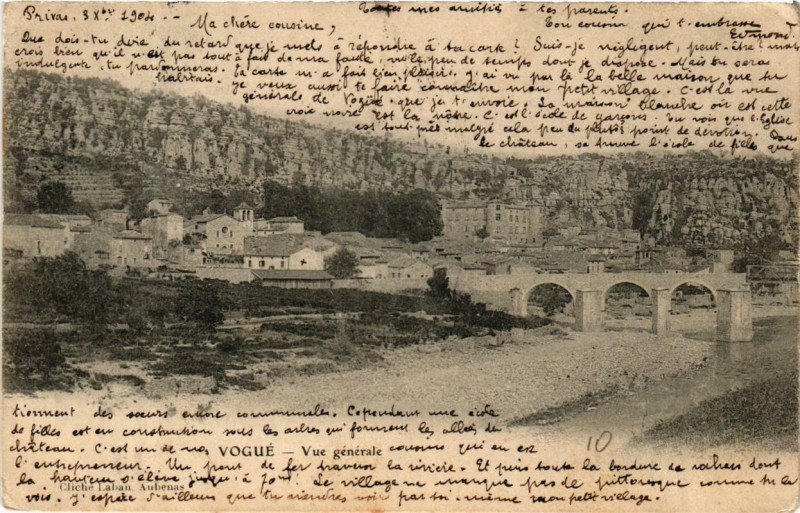 Privas, 3 Xbre 1904 --
Ma chère cousine,
Toutes mes amitiés à tes parents.
Ton cousin qui t'embrasse
Edmond
Que dois-tu dire du retard que je mets à répondre à ta carte ? Suis-je négligent, peut-être ! mais
crois bien qu'il n'est pas tout à fait de ma faute, vu le peu de temps dont je dispose. Mais tu seras
indulgente, tu pardonneras. Ta carte m'a fait bien plaisir. J'ai vu par là la belle maison que tu
habitais. Je veux aussi te faire connaître mon petit village. C'est la vue
générale de Vogüé que je t'envoie. La maison blanche où est cette
croix noire est la nôtre. C'est l'école de garçons. Tu vois que l'Eglise
est tout près malgré cela peu ou plutôt point de dévotion. Dans
le château, se trouve l'école de filles que
tiennent des sœurs encore communales. Cependant une école
de filles est en construction sous les arbres qui forment les allées du
château. C'est un de nos cousins qui en est
VOGUÉ — Vue générale
l'entrepreneur. Un pont de fer traverse la rivière. Et puis toute la bordure de rochers dont
la hauteur s'élève jusqu'à Le village ne manque pas de pittoresque comme tu le
vois. J'espère d'ailleurs que tu viendras voir par toi-même mon petit village.
Cliché Laban, Aubenas
10